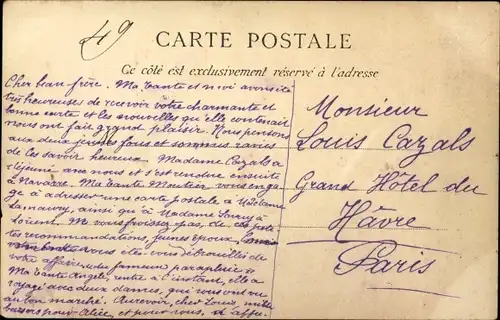 49
CARTE POSTALE
Ce côté est exclusivement réservé à l'adresse
Cher beau frère. Ma Tante et moi avons été
très heureuses de recevoir votre charmante et
bonne carte et les nouvelles qu'elle contenait
nous ont fait grand plaisir. Nous pensons
aux deux jeunes fous et sommes ravies
de les savoir heureux. Madame Cazals a
déjeuné avec nous et s'est rendue ensuite
à Navarre. Ma Tante Moutier vous enga
ge à adresser une carte postale à Madame
Lamaury, ainsi qu'à Madame
soient. Ne vous froissez pas, de ces peti
tes recommandations, jeunes époux,
vous êtes débrouillés de
votre affaire du fameux parapluie
Ma Tante Angèle rentre à l'instant, elle a
voyagé avec deux dames, qui vous ont vu
au bon marché. Au revoir, cher Louis, mille
baisers pour Alice, et pour vous, et affec.
Monsieur
Louis Cazals
Grand Hôtel du
Hâvre
Paris